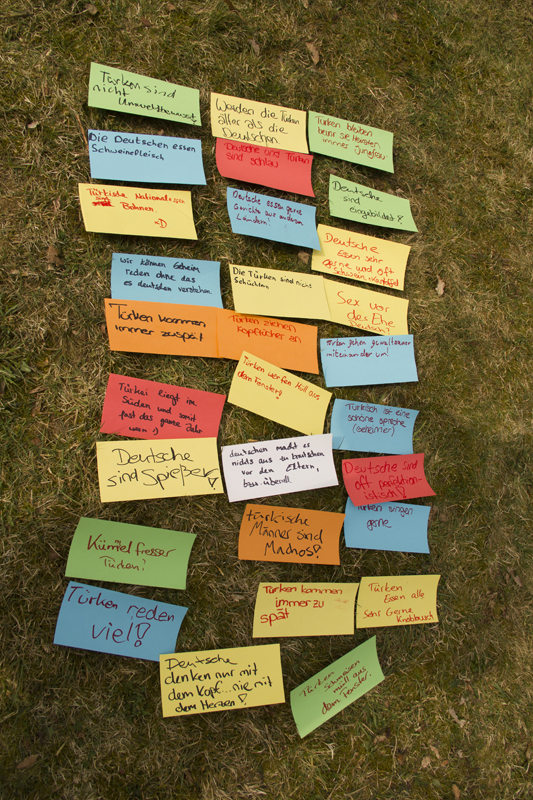 Türken sind
nicht
Umweltbewusst
Werden die Türken
älter als die
Deutschen
Türken bleiben
immer
Die Deutschen essen
Schweinefleisch
Deutsche und Türken
sind schlau
Türkische
Bohnen.
:D
Deutsche essen gerne
Gerichte aus anderen
Ländern!
Deutsche
sind
eingebildet!
Deutsche
Essen sehr
gerne und oft
Schwein + Kartoffel
Wir können Geheim
reden ohne das
es deutschen verstehen
Die Türken sind nicht
Schüchtern
Sex vor
der Ehe
Deutsch?
Türken kommen
immer zuspät
Türken ziehen
Kopftücher an
Türken gehen gewaltsamer
miteinander um!
Türkei liegt im
Süden und somit
fast das ganze Jahr
warm :)
Türken werfen Müll aus
dem Fenster!
Türkisch ist eine
schöne sprache
(geheimer)
Deutsche
sind Spießer!
deutschen macht es
nichts aus zu knutschen
vor den Eltern,
bzw. überall.
Deutsche sind
oft perfektion-
istisch!
Türken singen
gerne
türkische
Männer sind
Machos!
Kümmel fresser
Türken!
Türken reden
viel!
Türken kommen
immer zu
spät
Türken
Essen alle
Sehr Gerne
Knoblauch
Deutsche
denken nur mit
dem Kopf...nie mit
dem Herzen!
Türken
schmeisen
müll aus
dem Fenster.